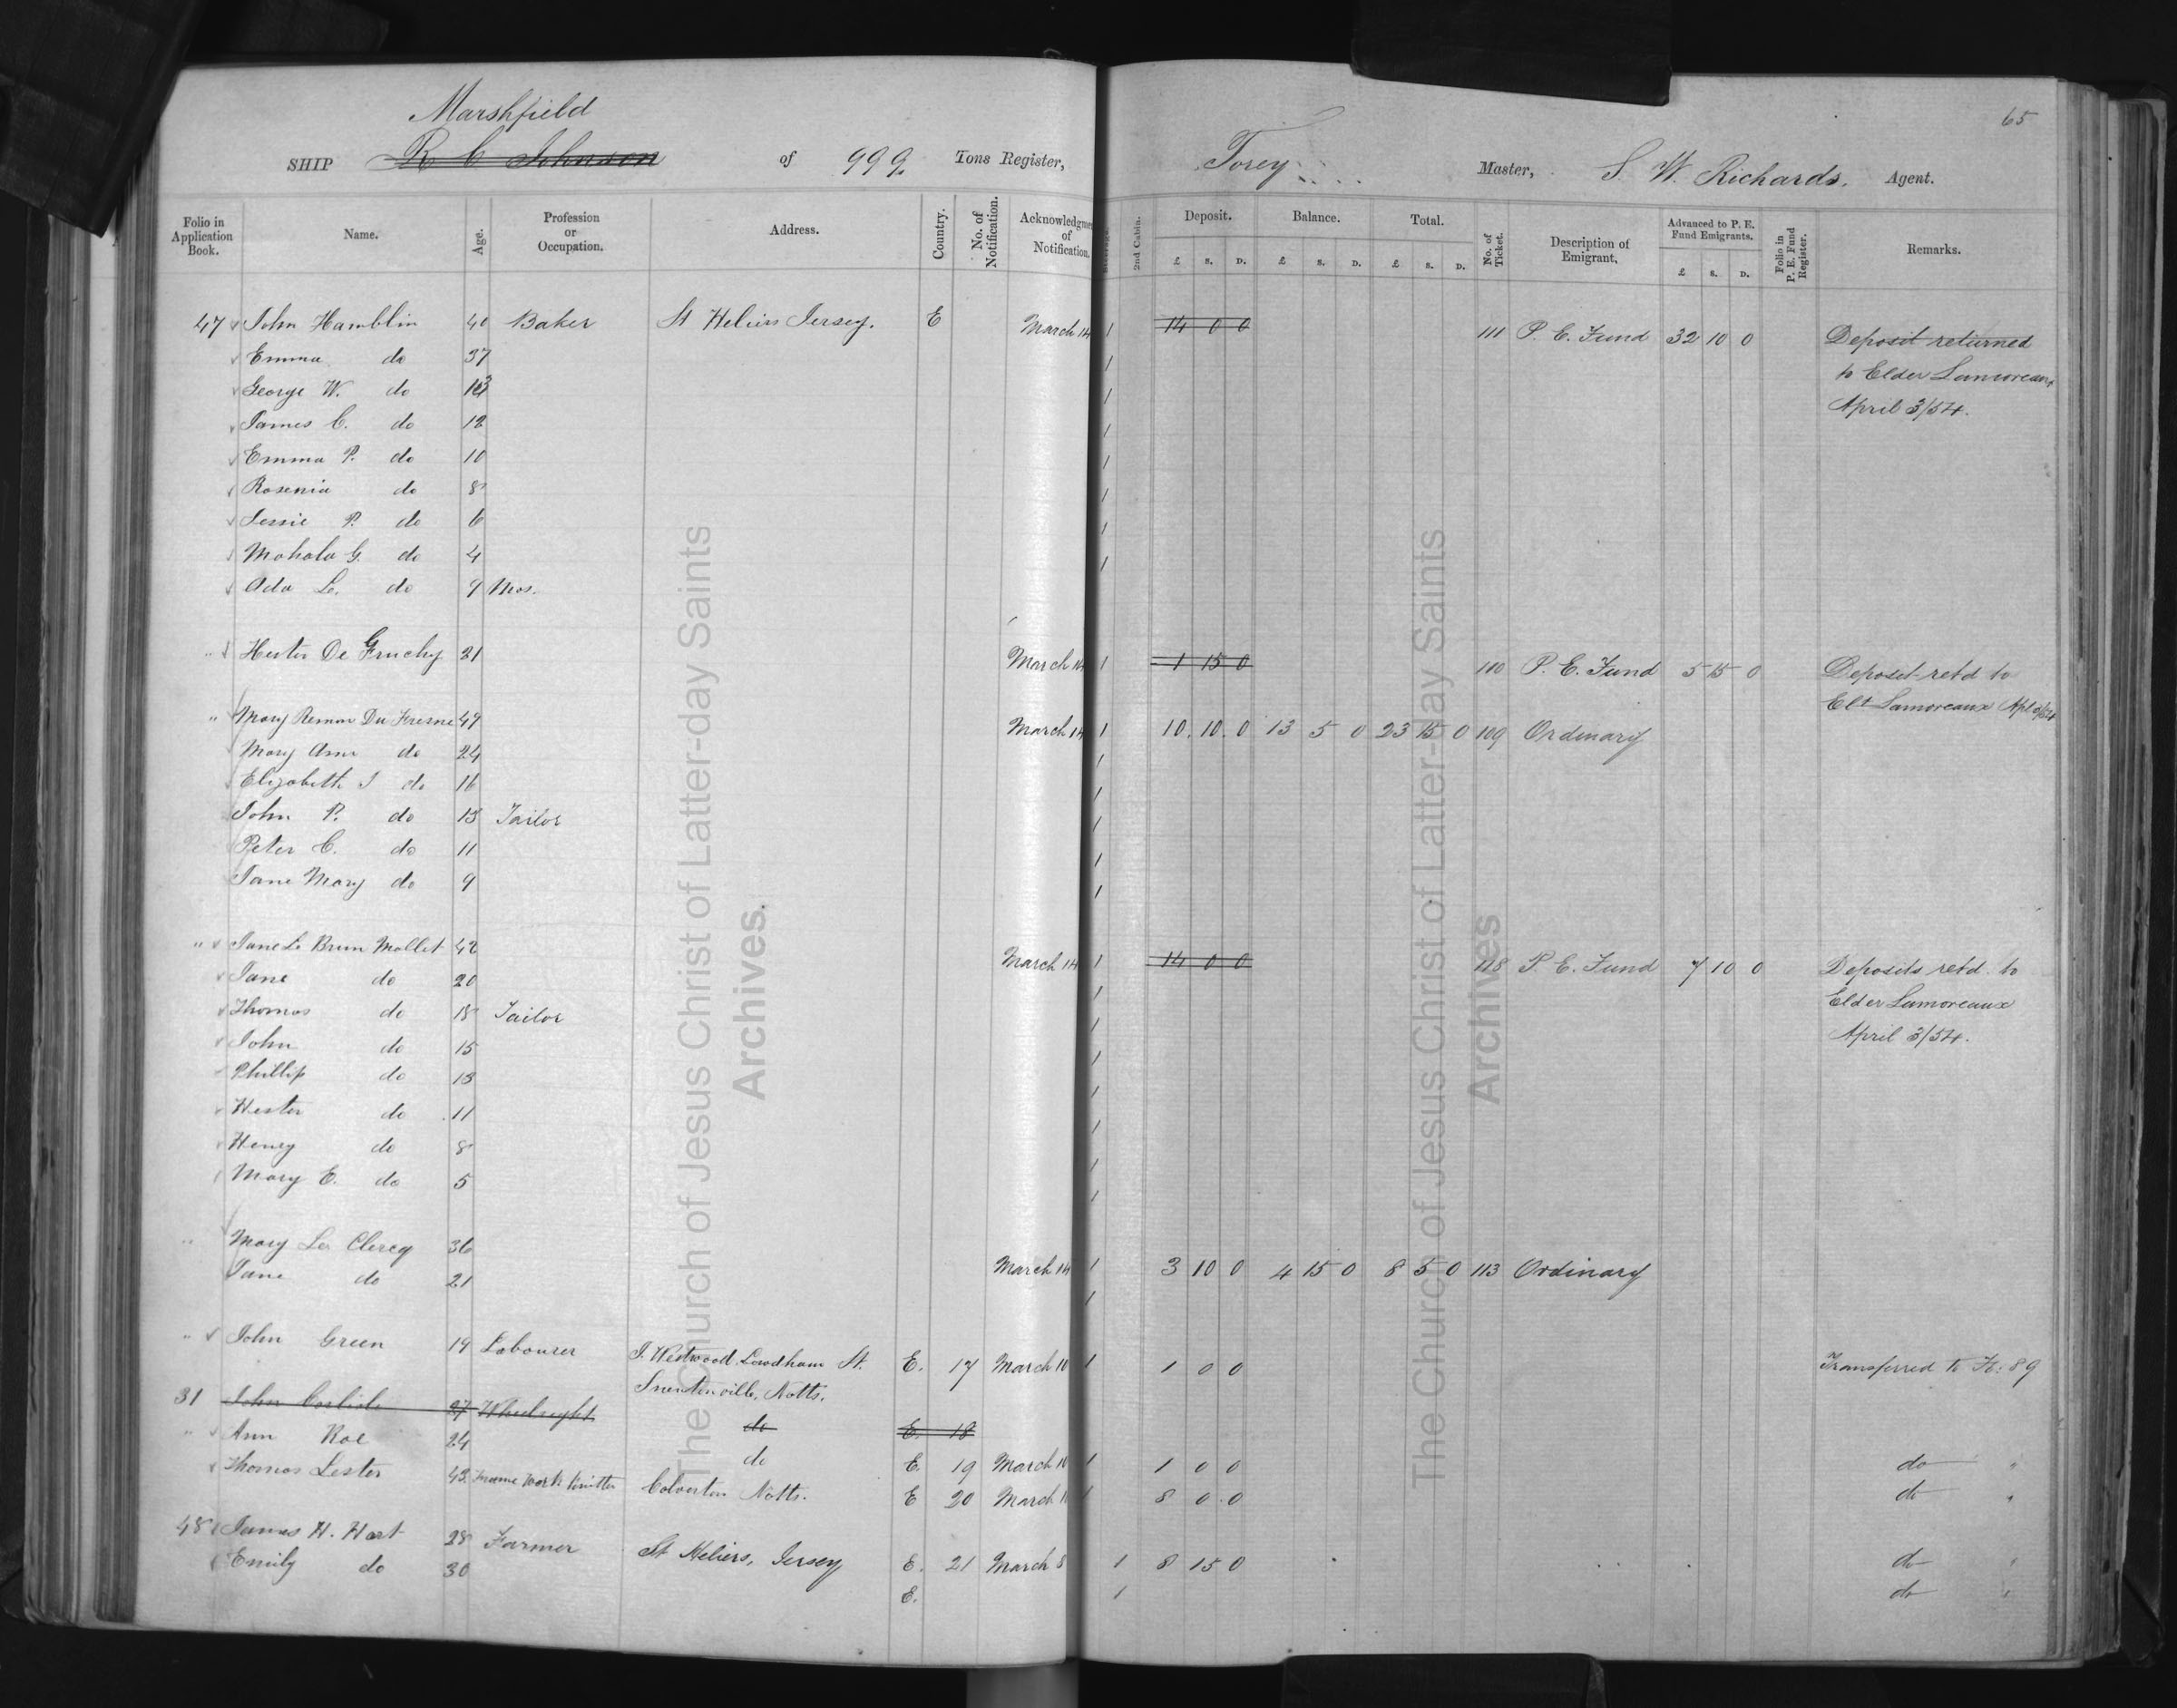 65
Marshfield
SHIP R C Johnson of 999 Tons Register, Torey Master, S. W. Richards. Agent.
Folio in Application Book. Name. Age. Profession or Occupation. Address. Country. No. of Notification. Acknowledgme of Notification. 2nd Cabin. Deposit. £ s. D. Balance. £ s. D. Total. £ s. D. No. of Ticket. Description of Emigrant. Advanced to P. E. Fund Emigrants. £ s. D. Folio in P. E. Fund Register. Remarks.
47 John Hamblin 40 Baker St Heliers Jersey. E March 14 1 14 0 0 111 P. E. Fund 32 10 0 Deposit returned
Emma do 37 1 to Elder Lamoreaux
George W. do 1 April 3/54.
James C. do 12 1
Emma P. do 10 1
Rosenia do 8 1
Jessie P. do 6 1
Mahala G. do 4 1
Ada Le. do 9 Mos.
" Hester De Gruchy 21 March 14 1 1 15 0 110 P. E. Fund 5 15 0 Deposit retd to
Elr Lamoreaux Apl 3/54
" Mary Remon Du Fresne 49 March 14 1 10. 10. 0 13 5 0 23 15 0 109 Ordinary
Mary Ann do 24 1
Elizabeth J do 16 1
John P. do 13 Tailor 1
Peter C. do 11 1
Jane Mary do 9 1
" Jane Le Brun Mallet 42 March 14 1 14 0 0 118 P. E. Fund 7 10 0 Deposits retd. to
Jane do 20 1 Elder Lamoreaux
Thomas do 18 Tailor 1 April 3/54.
John do 15 1
Phillip do 13 1
Hester do 11 1
Henry do 8 1
Mary E. do 5 1
" Mary Le Clercq 36 March 14 1 3 10 0 4 15 0 8 5 0 113 Ordinary
Jane do 21 1
" John Green 19 Labourer J. Westwood. Lowdham St. E. 17 March 10 1 1 0 0 Transferred to Fo: 89
Snentonville, Notts.
31 John Carlisle 27 Wheelwright do E. 18
" Ann Roe 24 do E. 19 March 10 1 1 0 0 do "
Thomas Lester 43 Frame Work Knitter Calverton Notts. E 20 March 1 8 0. 0 do "
48 James H. Hart 28 Farmer St Heliers, Jersey E. 21 March 8 1 8 15 0 do "
Emily do 30 E. 1 do "
The Church of Jesus Christ of Latter-day Saints
Archives.
The Church of Jesus Christ of Latter-day Saints
Archives